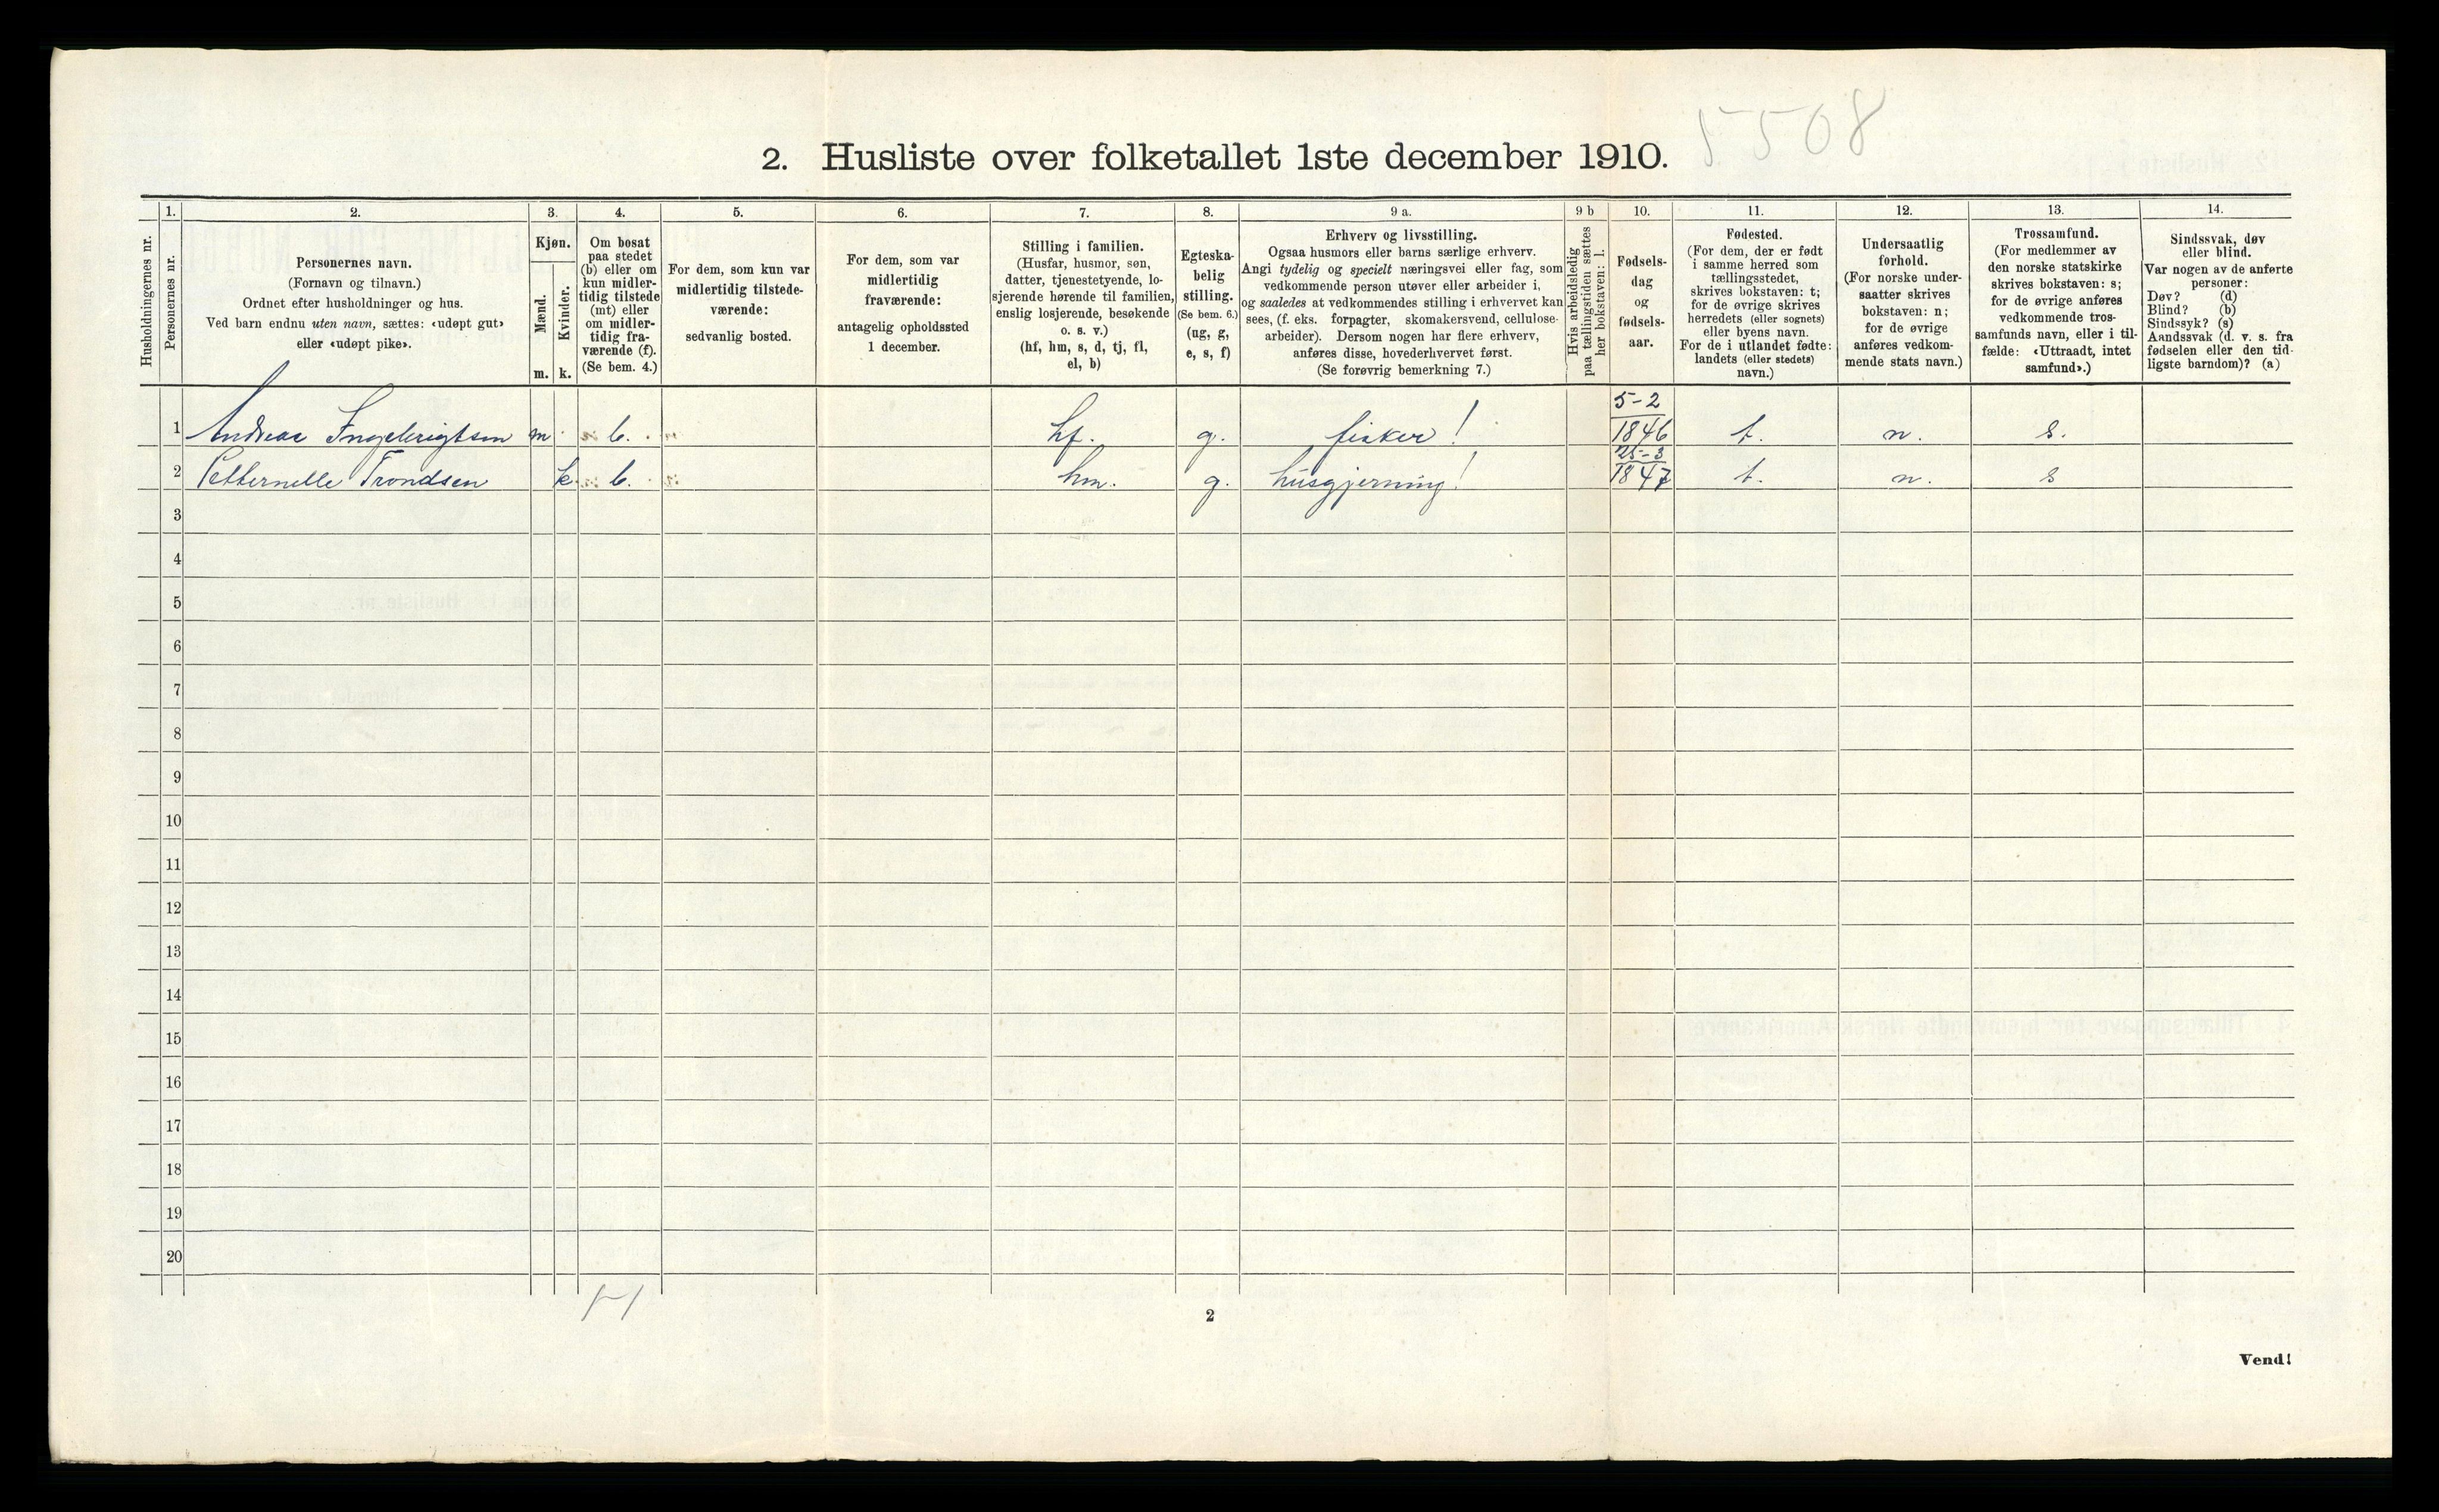 5508
2. Husliste over folketallet 1ste december 1910.
Husholdningernes nr.
1.
Personernes nr.
2.
Personernes navn.
(Fornavn og tilnavn.)
Ordnet efter husholdninger og hus.
Ved barn endnu uten navn, sættes: «udøpt gut»
eller «udøpt pike».
3.
Kjøn.
Mænd.
m.
Kvinder.
k.
4.
Om bosat
paa stedet
(b) eller om
kun midler-
tidig tilstede
(mt) eller
om midler-
tidig fra-
værende (f).
(Se bem. 4.)
5.
For dem, som kun var
midlertidig tilstede-
værende:
sedvanlig bosted.
6.
For dem, som var
midlertidig
fraværende:
antagelig opholdssted
1 december.
7.
Stilling i familien.
(Husfar, husmor, søn,
datter, tjenestetyende, lo-
sjerende hørende til familien,
enslig losjerende, besøkende
o. s. v.)
(hf, hm, s, d, tj, fl,
el, b)
8.
Egteska-
belig
stilling.
(Se bem. 6.)
(ug, g,
e, s, f)
9 a.
Erhverv og livsstilling.
Ogsaa husmors eller barns særlige erhverv.
Angi tydelig og specielt næringsvei eller fag, som
vedkommende person utøver eller arbeider i,
og saaledes at vedkommendes stilling i erhvervet kan
sees, (f. eks. forpagter, skomakersvend, cellulose-
arbeider). Dersom nogen har flere erhverv,
anføres disse, hovederhvervet først.
(Se forøvrig bemerkning 7.)
9 b
Hvis arbeidsledig
paa tællingstiden sættes
her bokstaven: l.
10.
Fødsels-
dag
og
fødsels-
aar.
11.
Fødested.
(For dem, der er født
i samme herred som
tællingsstedet,
skrives bokstaven: t;
for de øvrige skrives
herredets (eller sognets)
eller byens navn.
For de i utlandet fødte:
landets (eller stedets)
navn.)
12.
Undersaatlig
forhold.
(For norske under-
saatter skrives
bokstaven: n;
for de øvrige
anføres vedkom-
mende stats navn.)
13.
Trossamfund.
(For medlemmer av
den norske statskirke
skrives bokstaven: s;
for de øvrige anføres
vedkommende tros-
samfunds navn, eller i til-
fælde: «Uttraadt, intet
samfund».)
14.
Sindssvak, døv
eller blind.
Var nogen av de anførte
personer:
Døv? (d)
Blind? (b)
Sindssyk? (s)
Aandssvak (d. v. s. fra
fødselen eller den tid-
ligste barndom)? (a)
1 Andreas Ingebrigtsen m. b. hf. g. fisker! 5-2 1846 t. n. s.
2 Petternelle Trondsen k. b. hm. g. husgjerning! 25-3 1847 t. n. s
3
4
5
6
7
8
9
10
11
12
13
14
15
16
17
18
19
20
2
Vend!